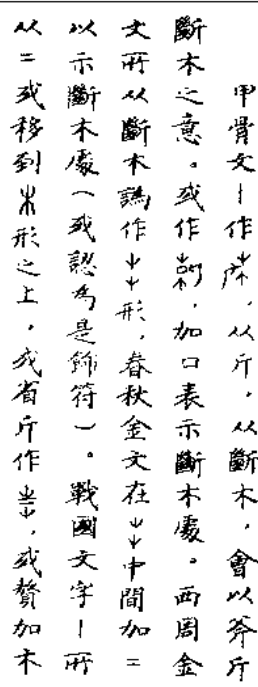 甲骨文丨作，从斤，从斷木，會以斧斤
斷木之意。或作，加口表示斷木處。西周金
文所从斷木譌作屮屮形，春秋金文在屮屮中間加二
以示斷木處（或認為是飾符）。戰國文字丨所
从二或移到形之上，或省斤作，或贅加木